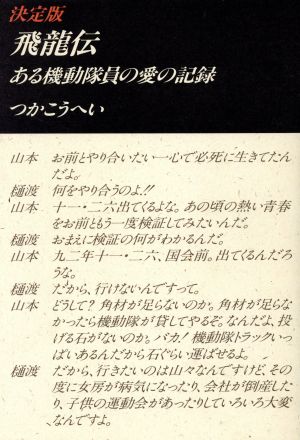 決定版
飛龍伝
ある機動隊員の愛の記録
つかこうへい
山本　お前とやり合いたい一心で必死に生きてたん
だよ。
樋渡　何をやり合うのよ!!
山本　十一・二六出てくるよな。あの頃の熱い青春
をお前ともう一度検証してみたいんだ。
樋渡　おまえに検証の何がわかるんだ。
山本　九二年十一・二六、国会前。出てくるんだろ
うな。
樋渡　だから、行けないんですって。
山本　どうして？　角材が足らないのか。角材が足らな
かったら機動隊が貸してやるぞ。なんだよ、投
げる石がないのか。バカ！　機動隊トラックいっ
ぱいあるんだから石ぐらい運ばせるよ。
樋渡　だから、行きたいのは山々なんですけど、その
度に女房が病気になったり、会社が倒産した
り、子供の運動会があったりしていろいろ大変
なんですよ。